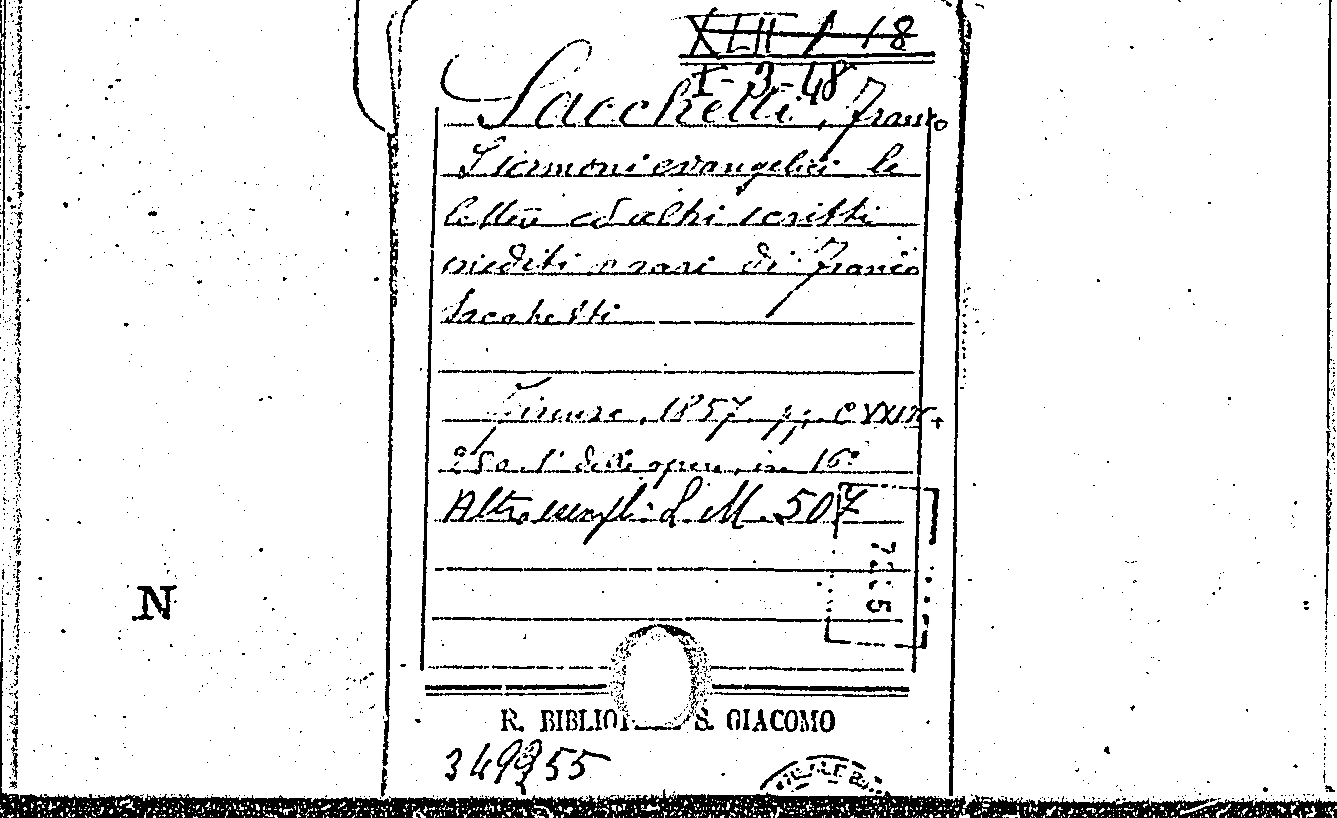 XLII 1 18
I-3-48
Sacchetti, Franco
I sermoni evangelici le
lettere ed altri scritti
inediti o rari di Franco
Sacchetti
Firenze, 1857. pp. CXXIV+
250. 1° delle opere, in 16°
Altro esempl: L M. 507
N
R. BIBLIO S. GIACOMO
349955